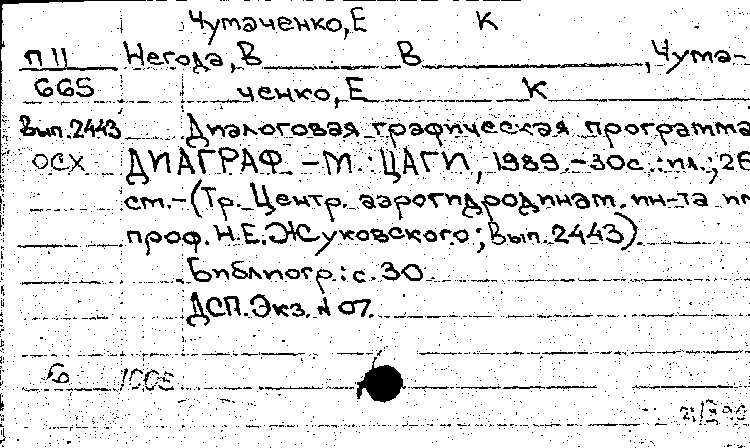 Чумаченко, Е К
П 11 Негода, В В , Чума-
665 ченко, Е К
Вып. 2443 Диалоговая графическая программа
ОСХ ДИАГРАФ. - М.: ЦАГИ, 1989. - 30с.: ил.; 26
см. - (Тр. Центр. аэрогидродинам. ин-та им
проф. Н.Е. Жуковского; Вып. 2443).
Библиогр.: с. 30
ДСП. Экз. № 07.
б